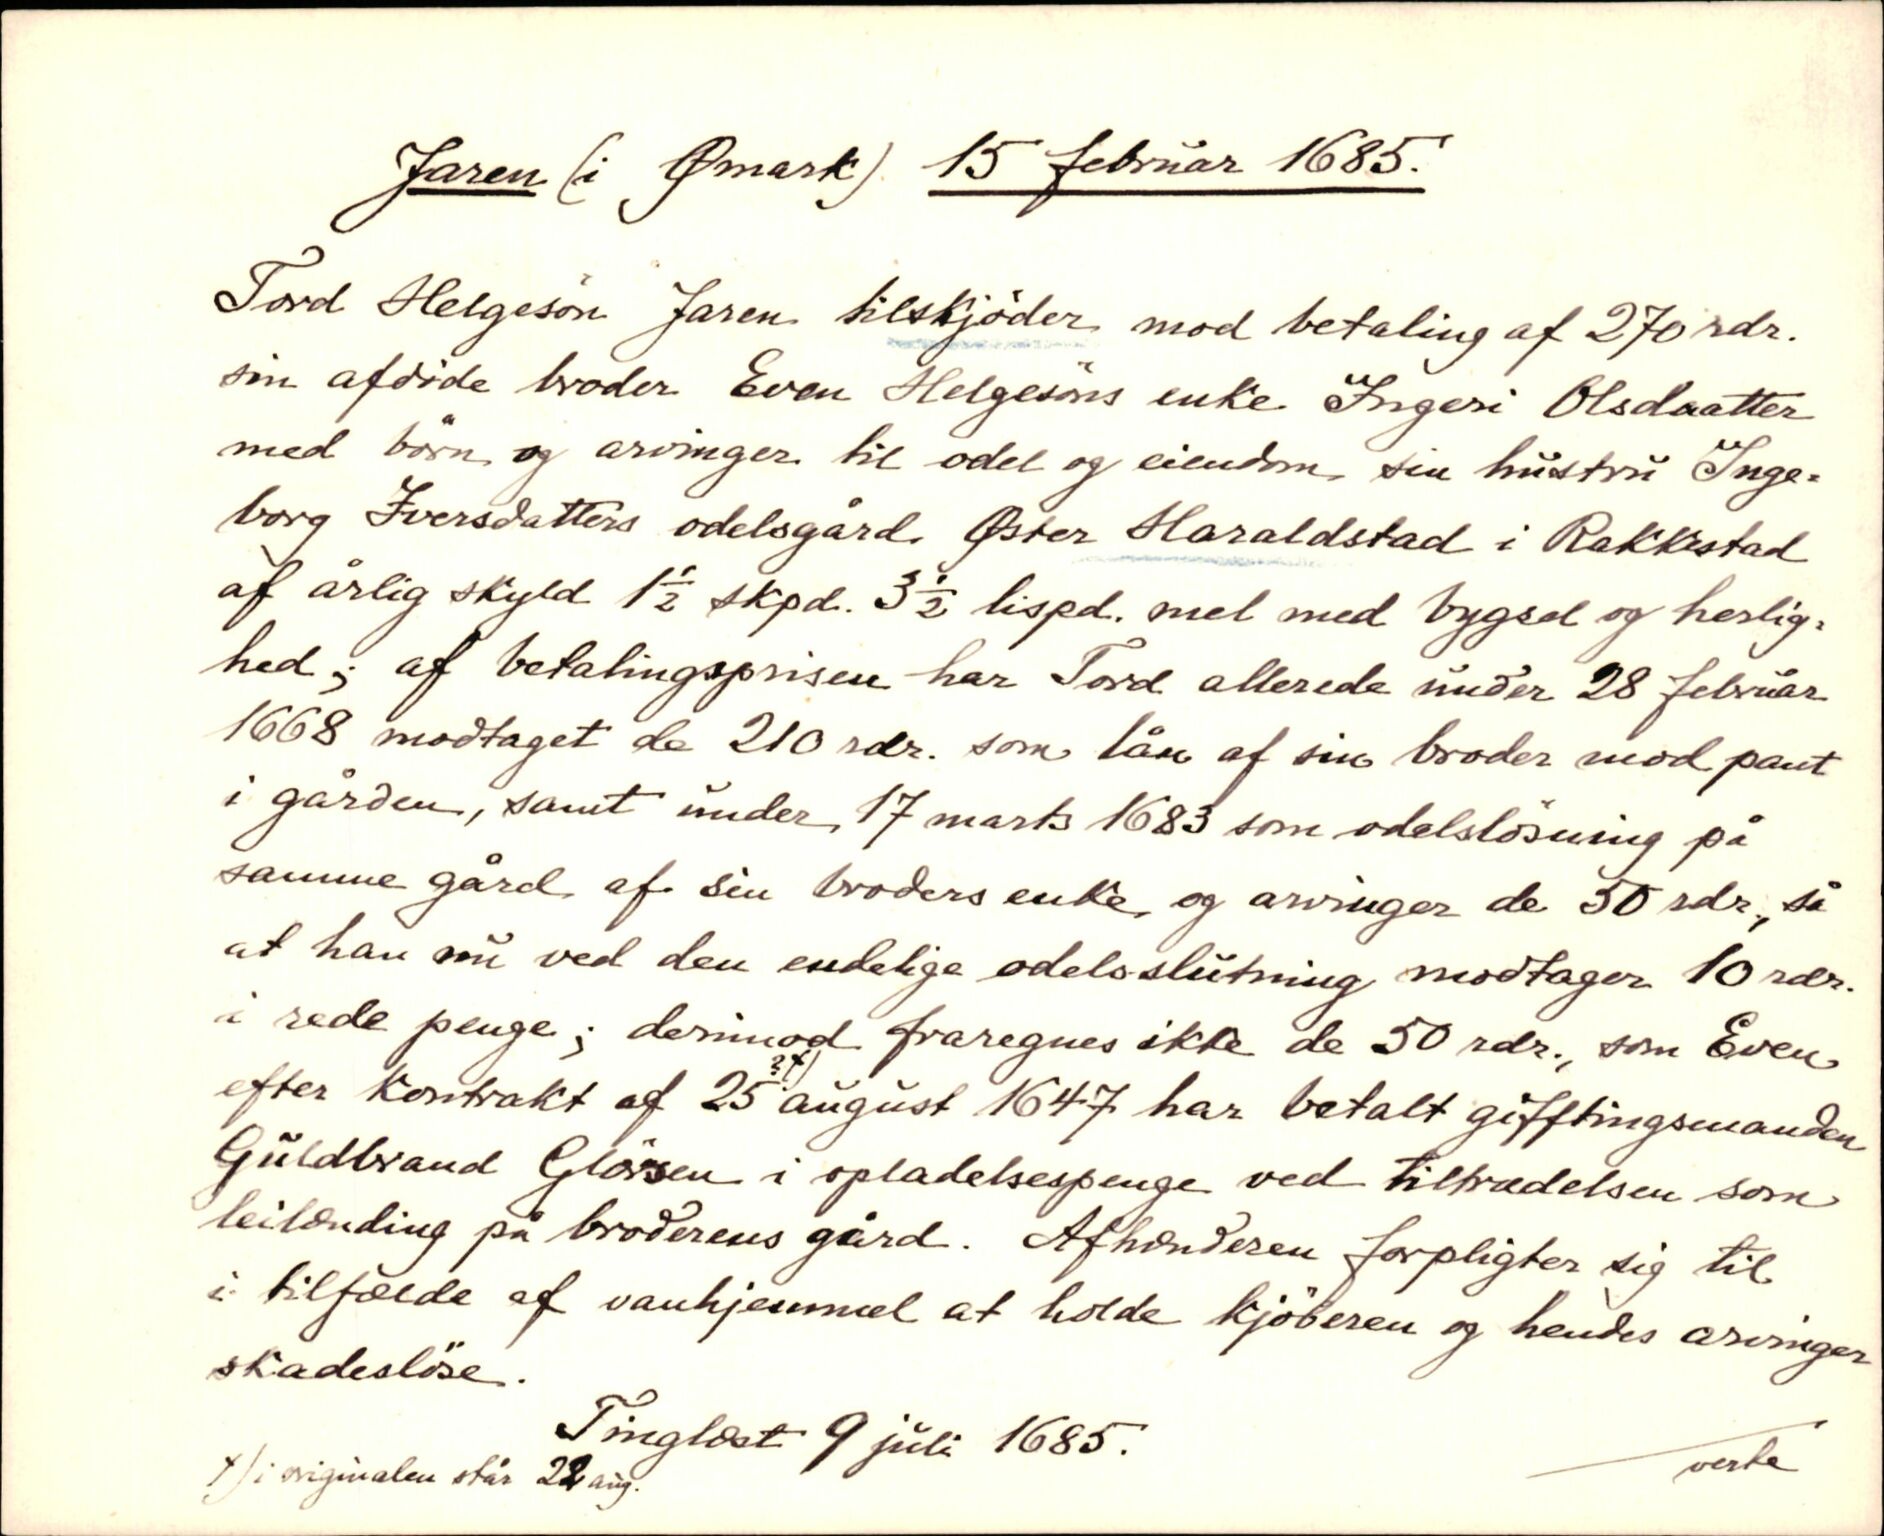 Jaren (i Ømark) 15 februar 1685.
Tord Helgesön Jaren tilskjöder mod betaling af 270 rdr.
sin afdöde broder Even Helgesöns enke Ingeri Olsdaatter
med börn og arvinger til odel og eiendom sin hustru Inge-
borg Iversdatters odelsgård Øster Haraldstad i Rakkestad
af årlig skyld 1½ skpd. 3½ lispd. mel med bygsel og herlig-
hed; af betalingsprisen har Tord allerede under 28 februar
1668 modtaget de 210 rdr. som lån af sin broder mod pant
i gården, samt under 17 marts 1683 som odelslösning på
samme gård af sin broders enke og arvinger de 50 rdr., så
at han nu ved den endelige odelsslutning modtager 10 rdr.
i rede penge; derimod fraregnes ikke de 50 rdr., som Even
efter kontrakt af 25 ?†) august 1647 har betalt gifftingsmanden
Guldbrand Glörsen i opladelsespenge ved tiltrædelsen som
leilænding på broderens gård. Afhænderen forpligter sig til
i tilfælde af vanhjemmel at holde kjöberen og hendes arvinger
skadeslöse.
Tinglæst 9 juli 1685.
†) i originalen står 22 aug.
verte